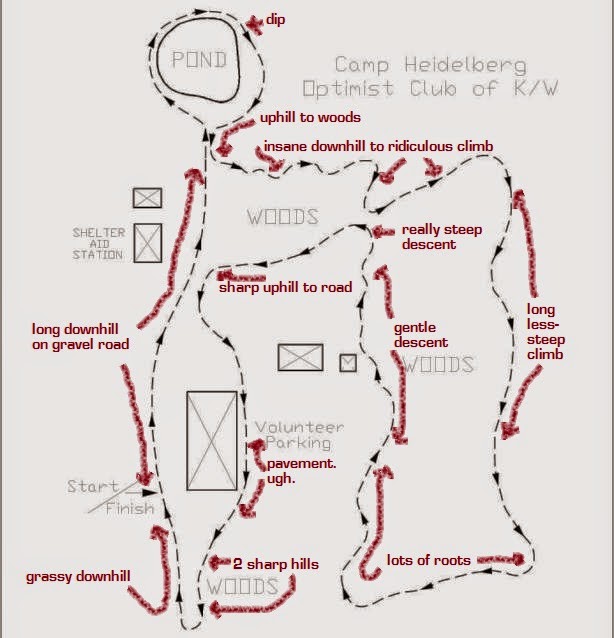 dip
POND
Camp Heidelberg
Optimist Club of K/W
uphill to woods
insane downhill to ridiculous climb
WOODS
SHELTER
AID
STATION
really steep
descent
sharp uphill to road
long downhill
on gravel road
gentle
descent
long
less-
steep
climb
WOODS
Volunteer
Parking
pavement.
ugh.
Start
Finish
2 sharp hills
lots of roots
grassy downhill
WOODS